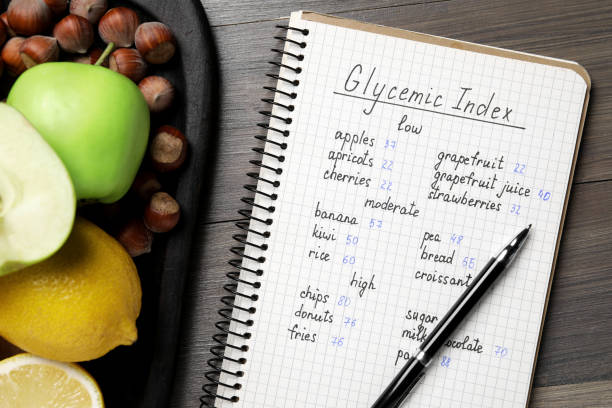 Glycemic Index
low
apples 37
apricots 22
cherries 22
grapefruit 22
grapefruit juice 40
strawberries 32
moderate
banana 57
kiwi 50
rice 60
pea 48
bread 55
croissant
high
chips 80
donuts 76
fries 76
sugar
milk chocolate 70
88